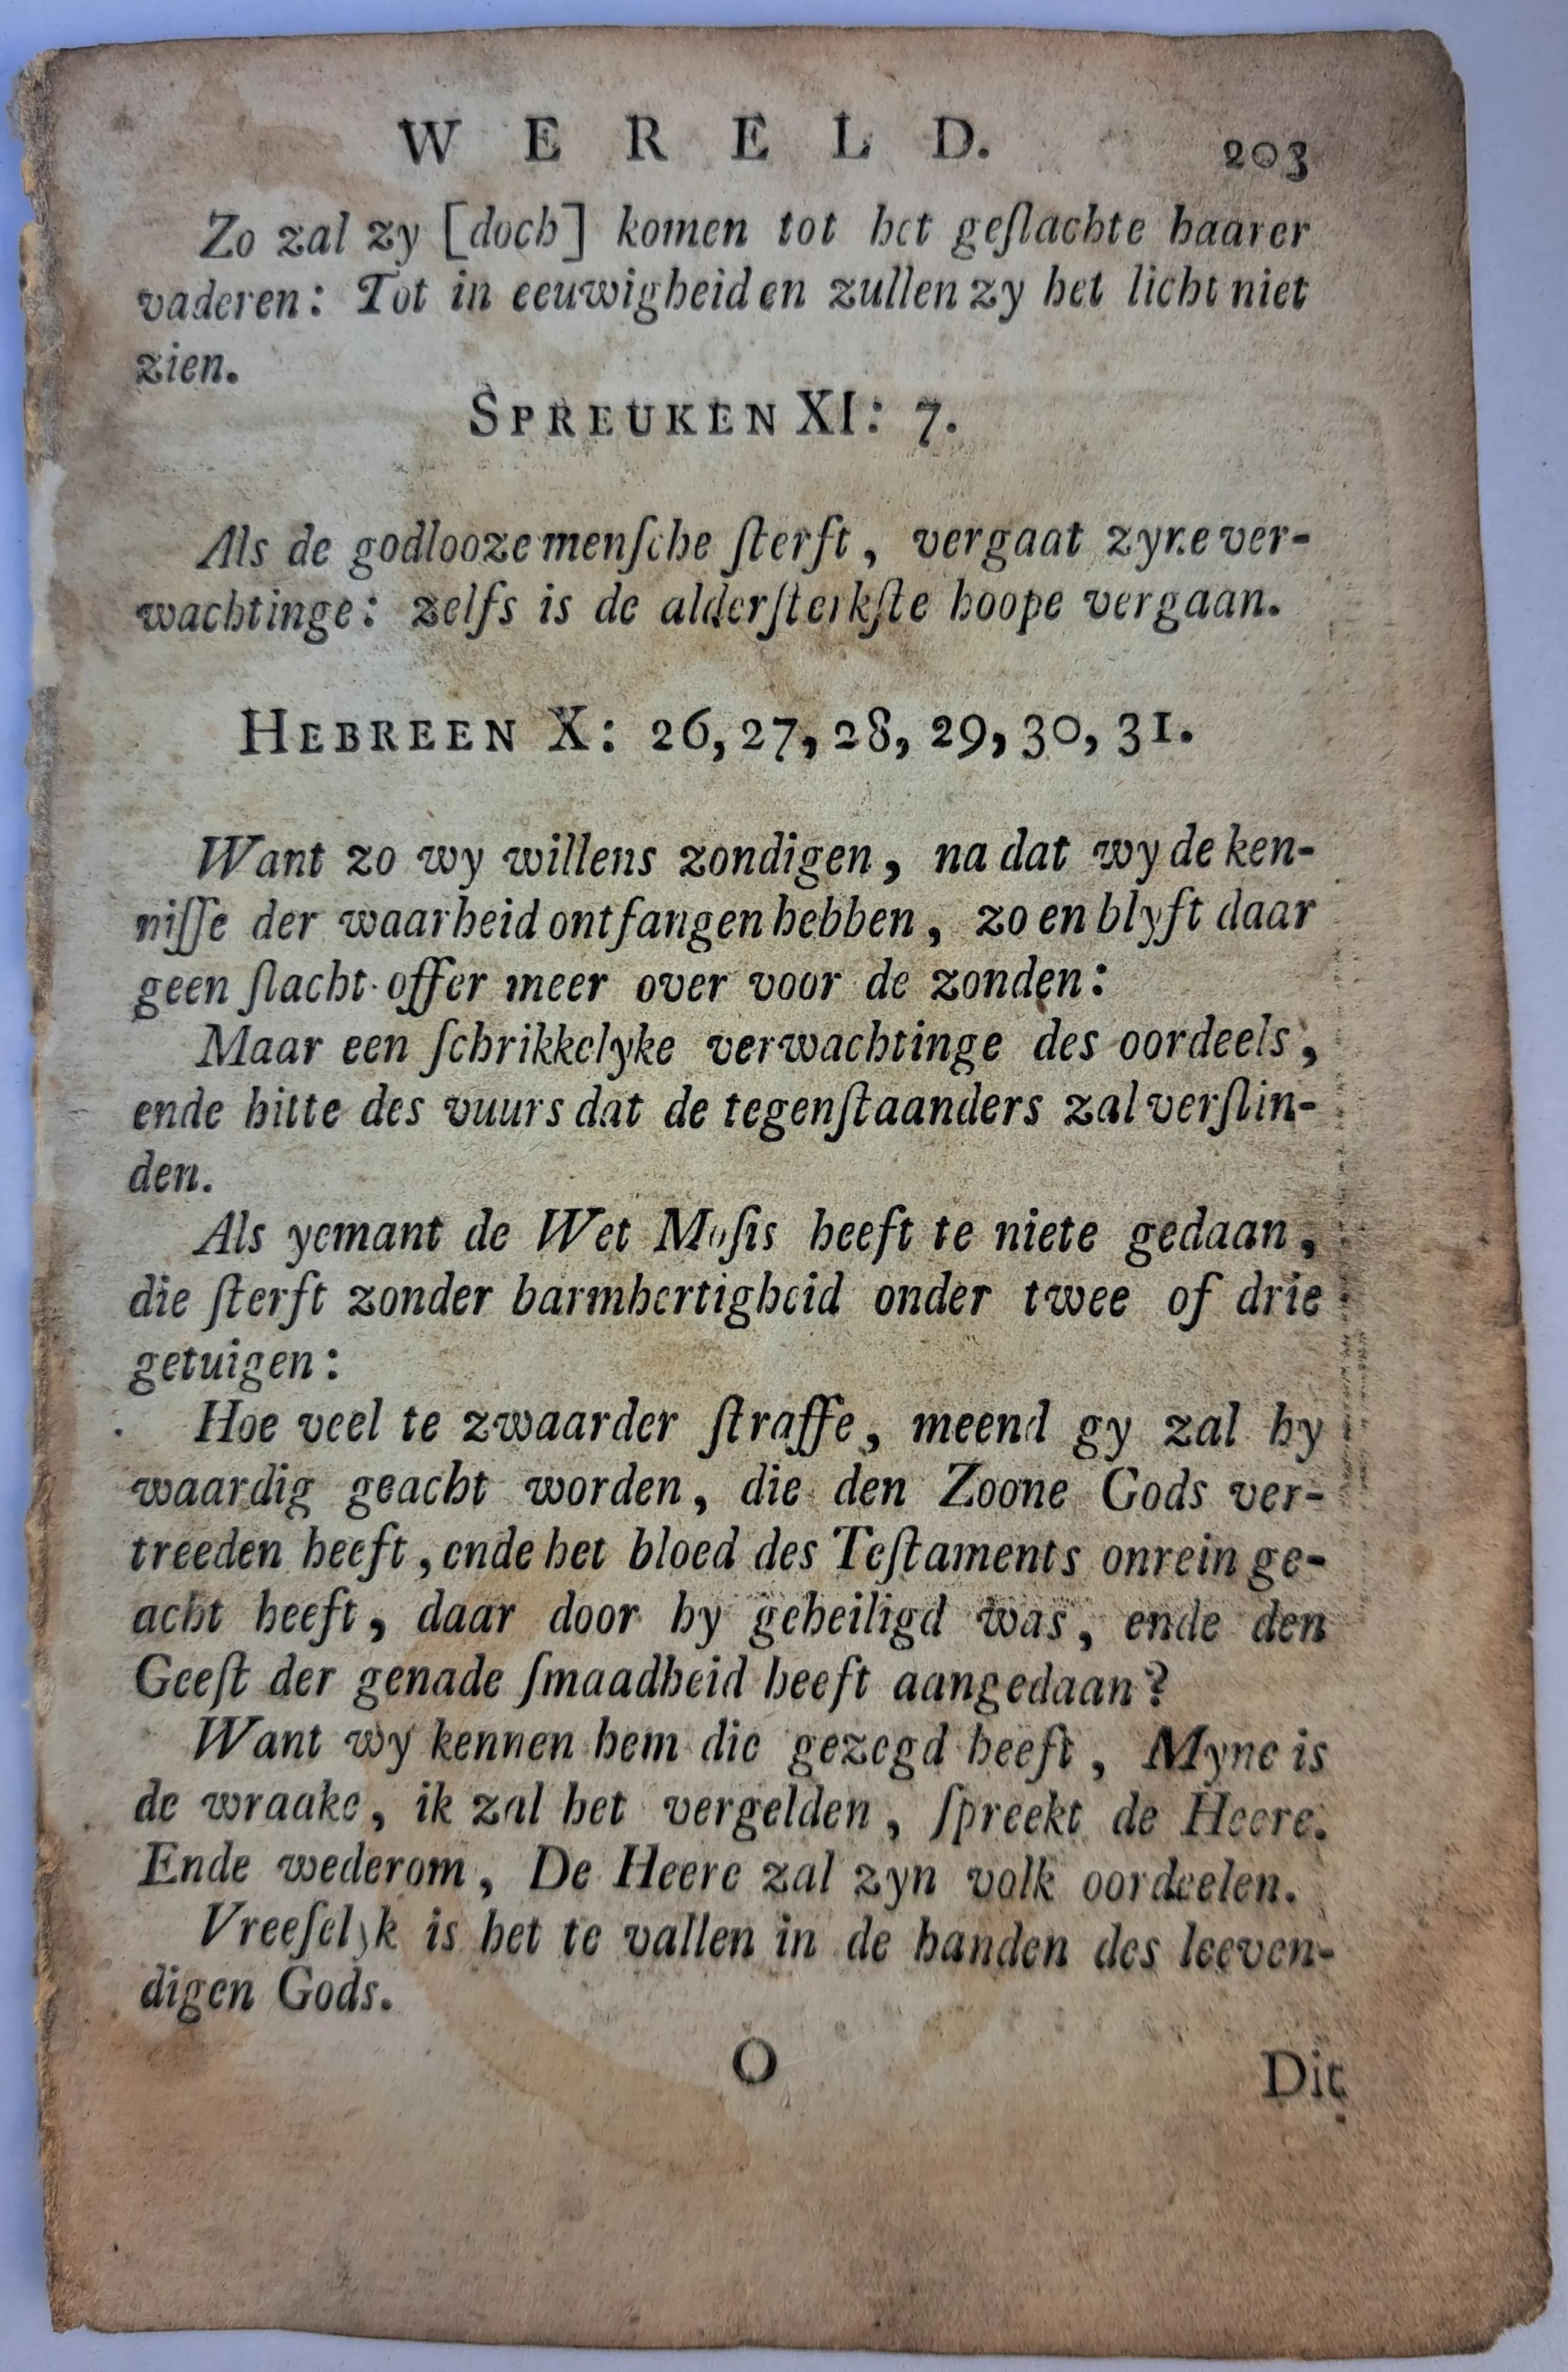 WERELD. 203
Zo zal zy [doch] komen tot het geſlachte haarer
vaderen: Tot in eeuwigheiden zullen zy het licht niet
zien.
SPREUKEN XI: 7.
Als de godlooze menſche ſterft, vergaat zyne ver-
wachtinge: zelfs is de alderſterkſte hoope vergaan.
HEBREEN X: 26, 27, 28, 29, 30, 31.
Want zo wy willens zondigen, na dat wy de ken-
niſſe der waarheid ontfangen hebben, zo en blyft daar
geen ſlacht-offer meer over voor de zonden:
Maar een ſchrikkelyke verwachtinge des oordeels,
ende hitte des vuurs dat de tegenſtaanders zal verſlin-
den.
Als yemant de Wet Moſis heeft te niete gedaan,
die ſterft zonder barmhertigheid onder twee of drie
getuigen:
Hoe veel te zwaarder ſtraffe, meend gy zal hy
waardig geacht worden, die den Zoone Gods ver-
treeden heeft, ende het bloed des Teſtaments onrein ge-
acht heeft, daar door hy geheiligd was, ende den
Geeſt der genade ſmaadheid heeft aangedaan?
Want wy kennen hem die gezegd heeft, Myne is
de wraake, ik zal het vergelden, ſpreekt de Heere.
Ende wederom, De Heere zal zyn volk oordeelen.
Vreeſelyk is het te vallen in de handen des leeven-
digen Gods.
O Dit